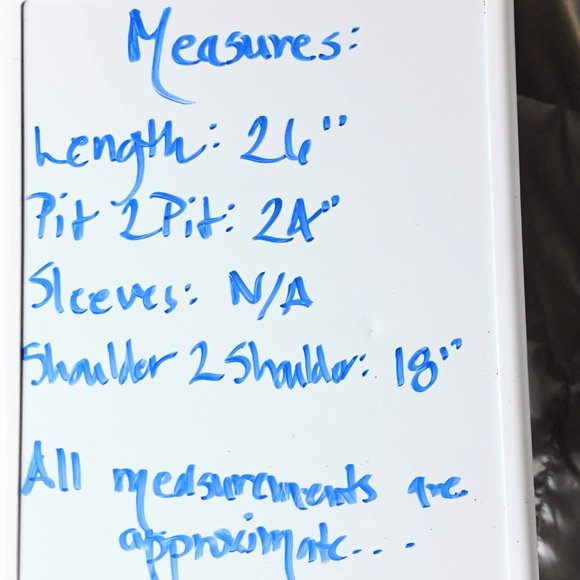 Measures:
Length: 26"
Pit 2 Pit: 24"
Sleeves: N/A
Shoulder 2 Shoulder: 18"
All measurements are
approximate...